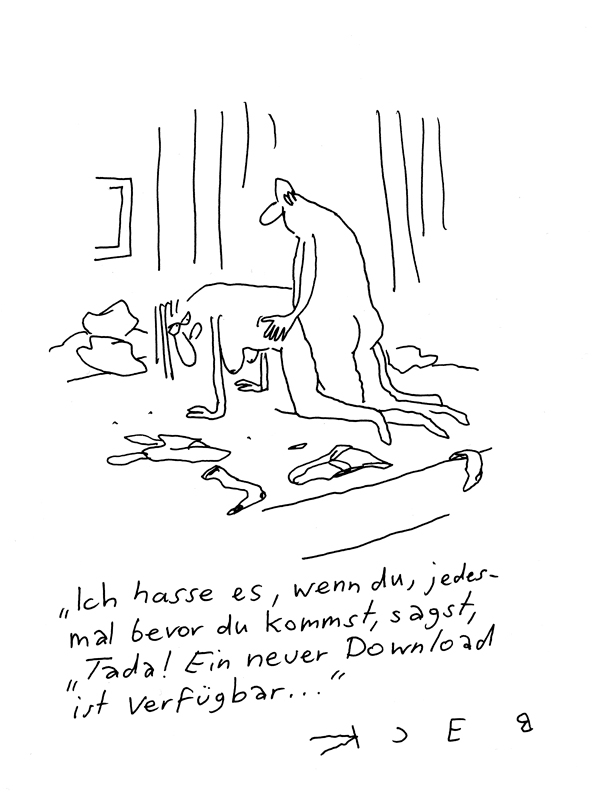 „Ich hasse es, wenn du, jedes-
mal bevor du kommst, sagst,
„Tada! Ein neuer Download
ist verfügbar..."
BECK